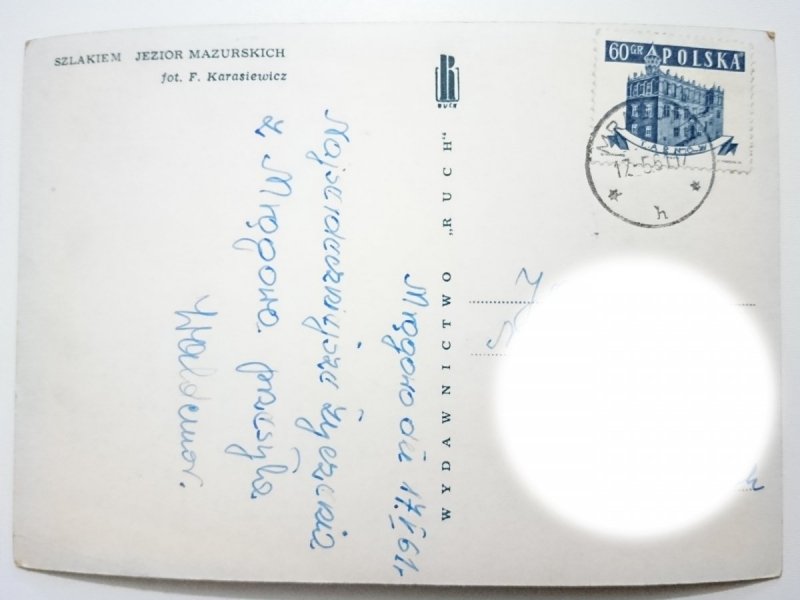 SZLAKIEM JEZIOR MAZURSKICH
fot. F. Karasiewicz
RUCH
WYDAWNICTWO „RUCH"
60 GR POLSKA
TARNÓW
h
Mrągowo dn 17.V.61r
Najserdeczniejsze życzenia
z Mrągowa przesyła
Waldemar.